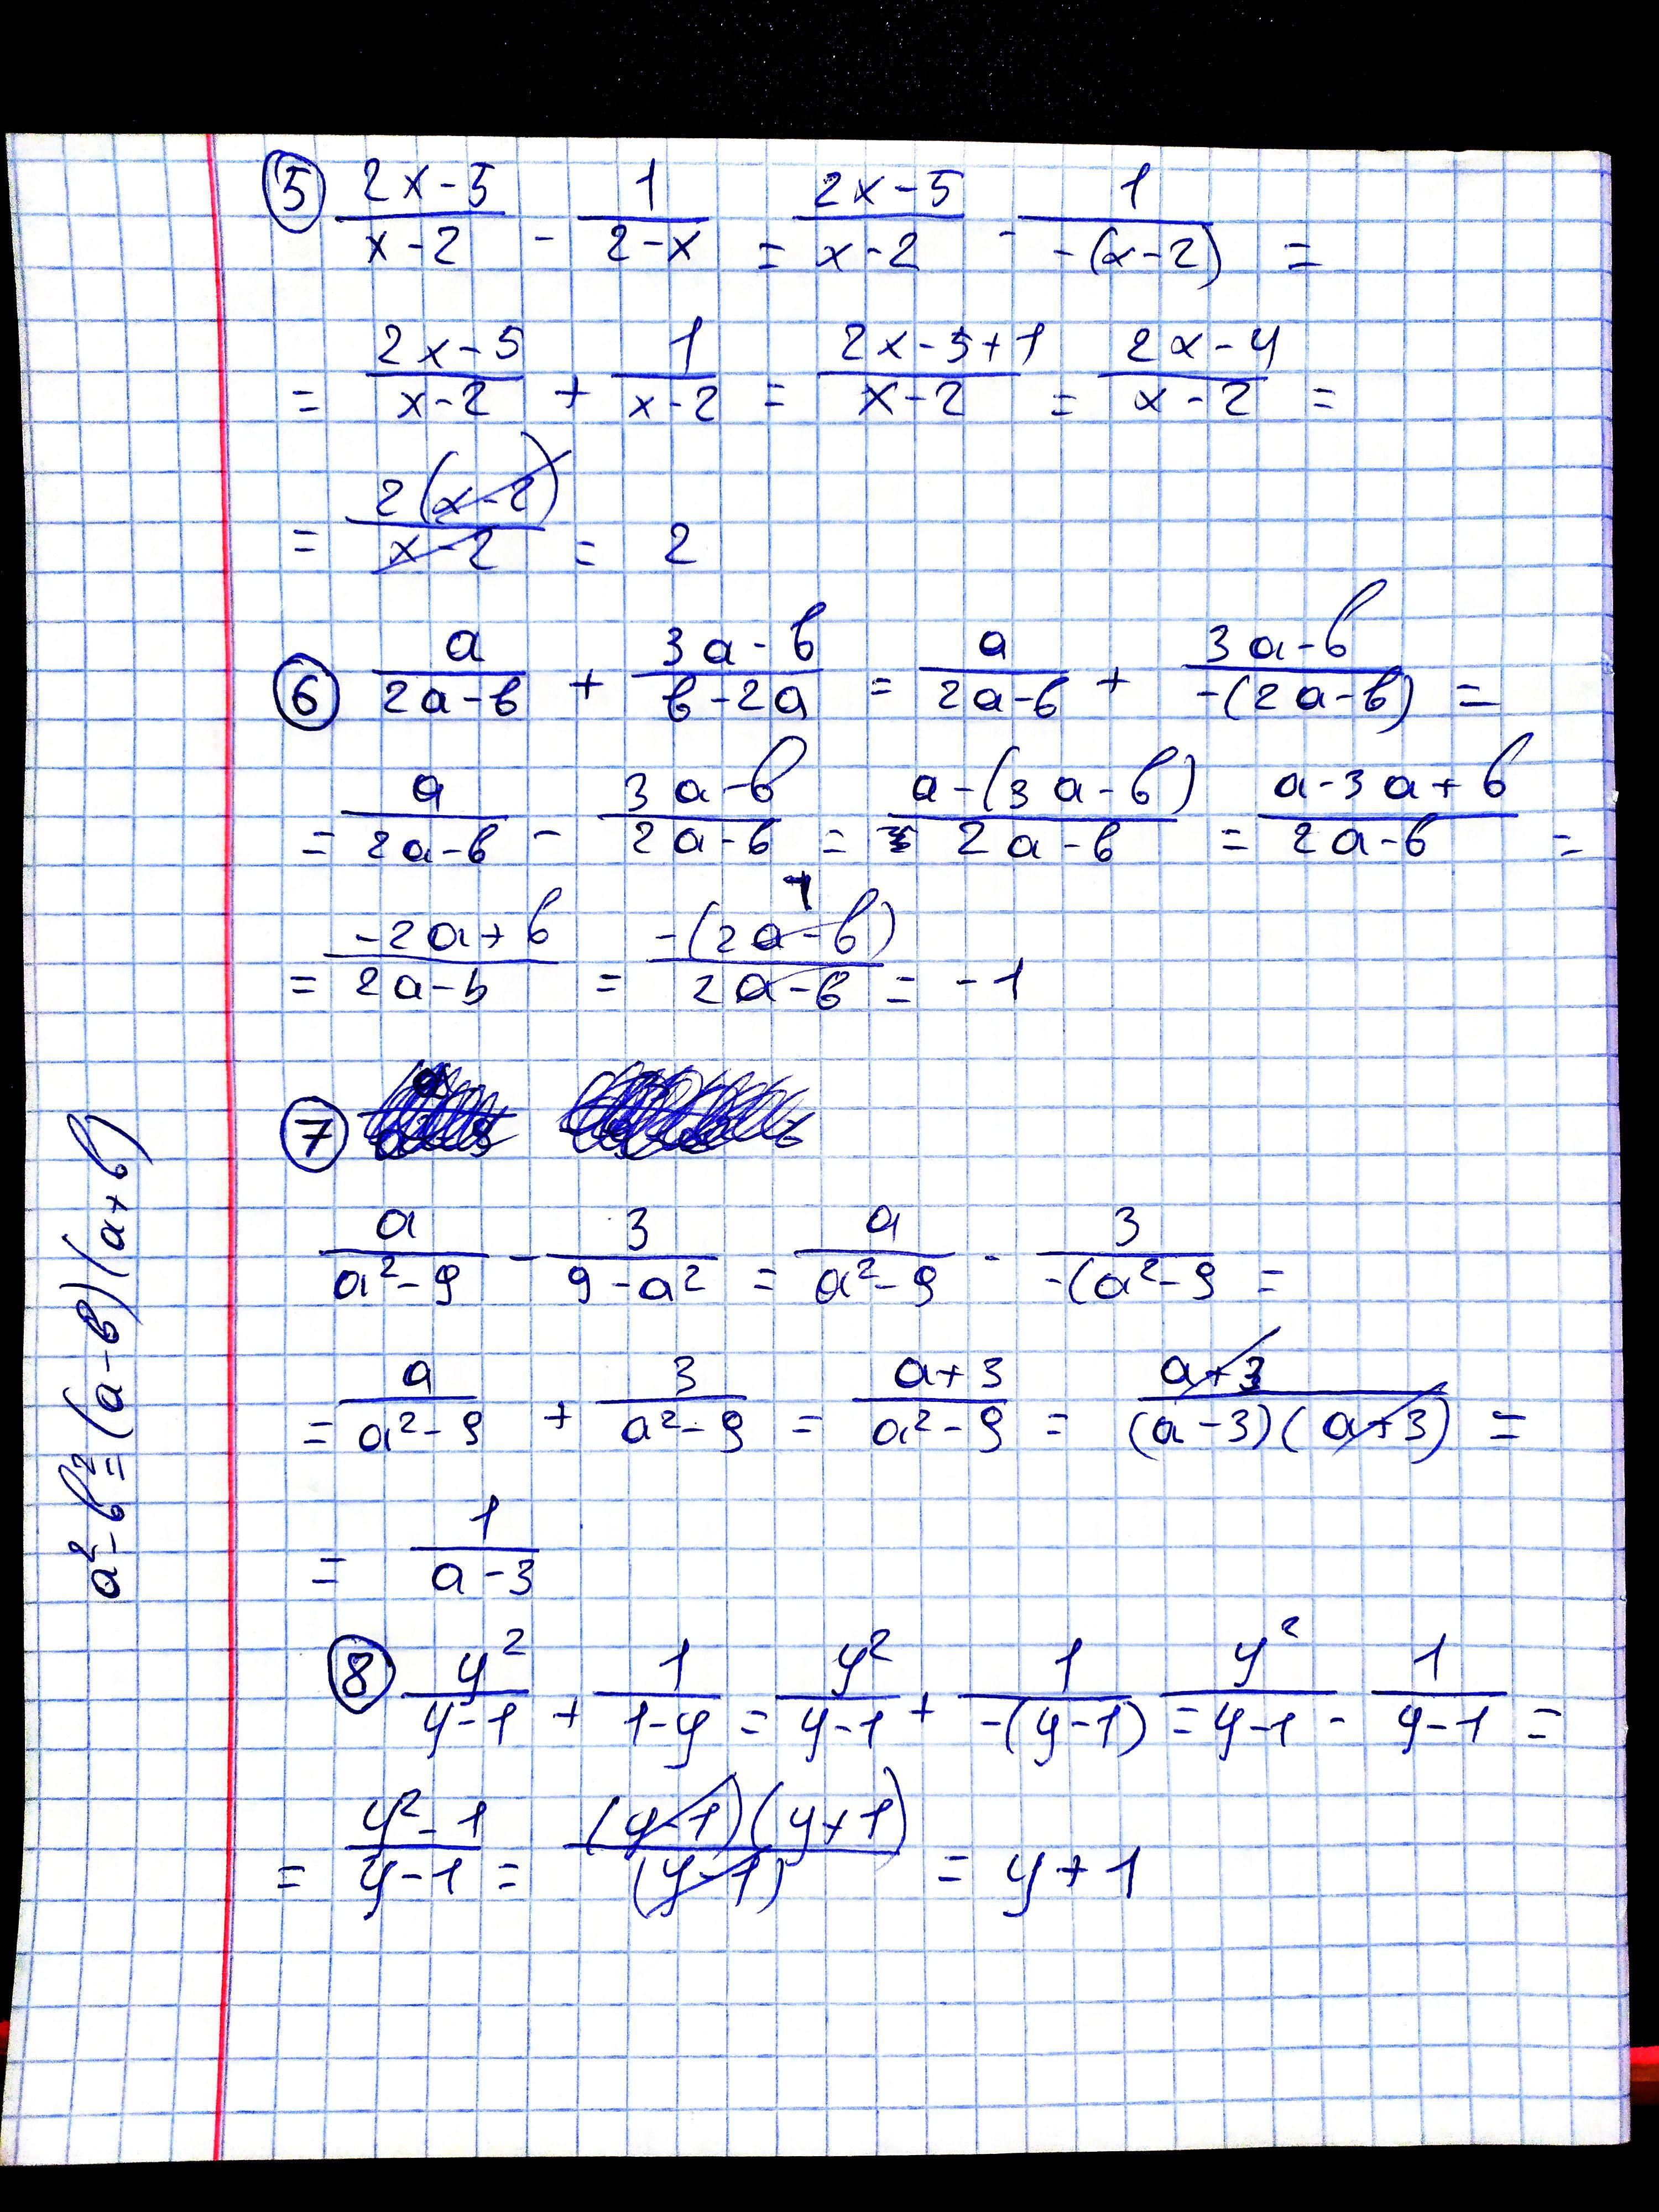 ⑤ (2x-5)/(x-2) - 1/(2-x) = (2x-5)/(x-2) - 1/(-(x-2)) =
= (2x-5)/(x-2) + 1/(x-2) = (2x-5+1)/(x-2) = (2x-4)/(x-2) =
= 2(x-2)/(x-2) = 2
⑥ a/(2a-в) + (3a-в)/(в-2a) = a/(2a-в) + (3a-в)/(-(2a-в)) =
= a/(2a-в) - (3a-в)/(2a-в) = (a-(3a-в))/(2a-в) = (a-3a+в)/(2a-в) =
= (-2a+в)/(2a-в) = -(2a-в)/(2a-в) = -1
⑦
a/(a²-9) - 3/(9-a²) = a/(a²-9) - 3/(-(a²-9) =
= a/(a²-9) + 3/(a²-9) = (a+3)/(a²-9) = (a+3)/((a-3)(a+3)) =
= 1/(a-3)
⑧ y²/(y-1) + 1/(1-y) = y²/(y-1) + 1/(-(y-1)) = y²/(y-1) - 1/(y-1) =
= (y²-1)/(y-1) = (y-1)(y+1)/(y-1) = y+1
a²-в²=(a-в)(a+в)